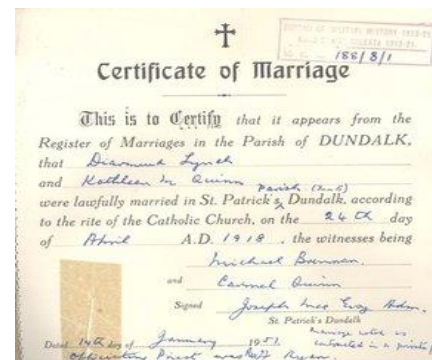 BUREAU OF MILITARY HISTORY 1913-21
188/8/1
Certificate of Marriage
This is to Certify that it appears from the
Register of Marriages in the Parish of DUNDALK,
that Diarmuid Lynch
and Kathleen M Quinn
Parish
were lawfully married in St. Patrick's, Dundalk, according
to the rite of the Catholic Church, on the 24th day
of April A.D. 1918, the witnesses being
Michael Brennan
and Carmel Quinn
Signed Joseph Mac Evoy Adm.
St. Patrick's Dundalk
Dated 14th day of January 1951 Marriage noted as
contracted in a private
Officiating Priest was